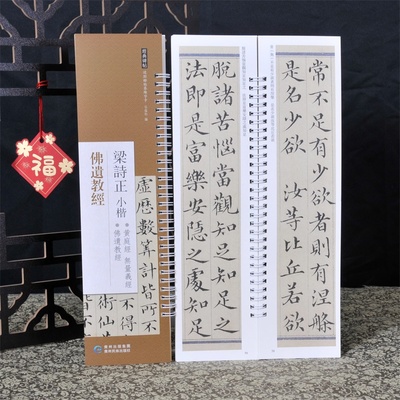 福
梁詩正 小楷
佛遺教經
★黃庭經 無量義經
★佛遺教經
虛歷數筭計皆所不
不得
術仙
常不足有少欲者則有涅槃
是名少欲 汝等比丘若欲
脫諸苦惱當觀知足知足之
法即是富樂安隱之處知足